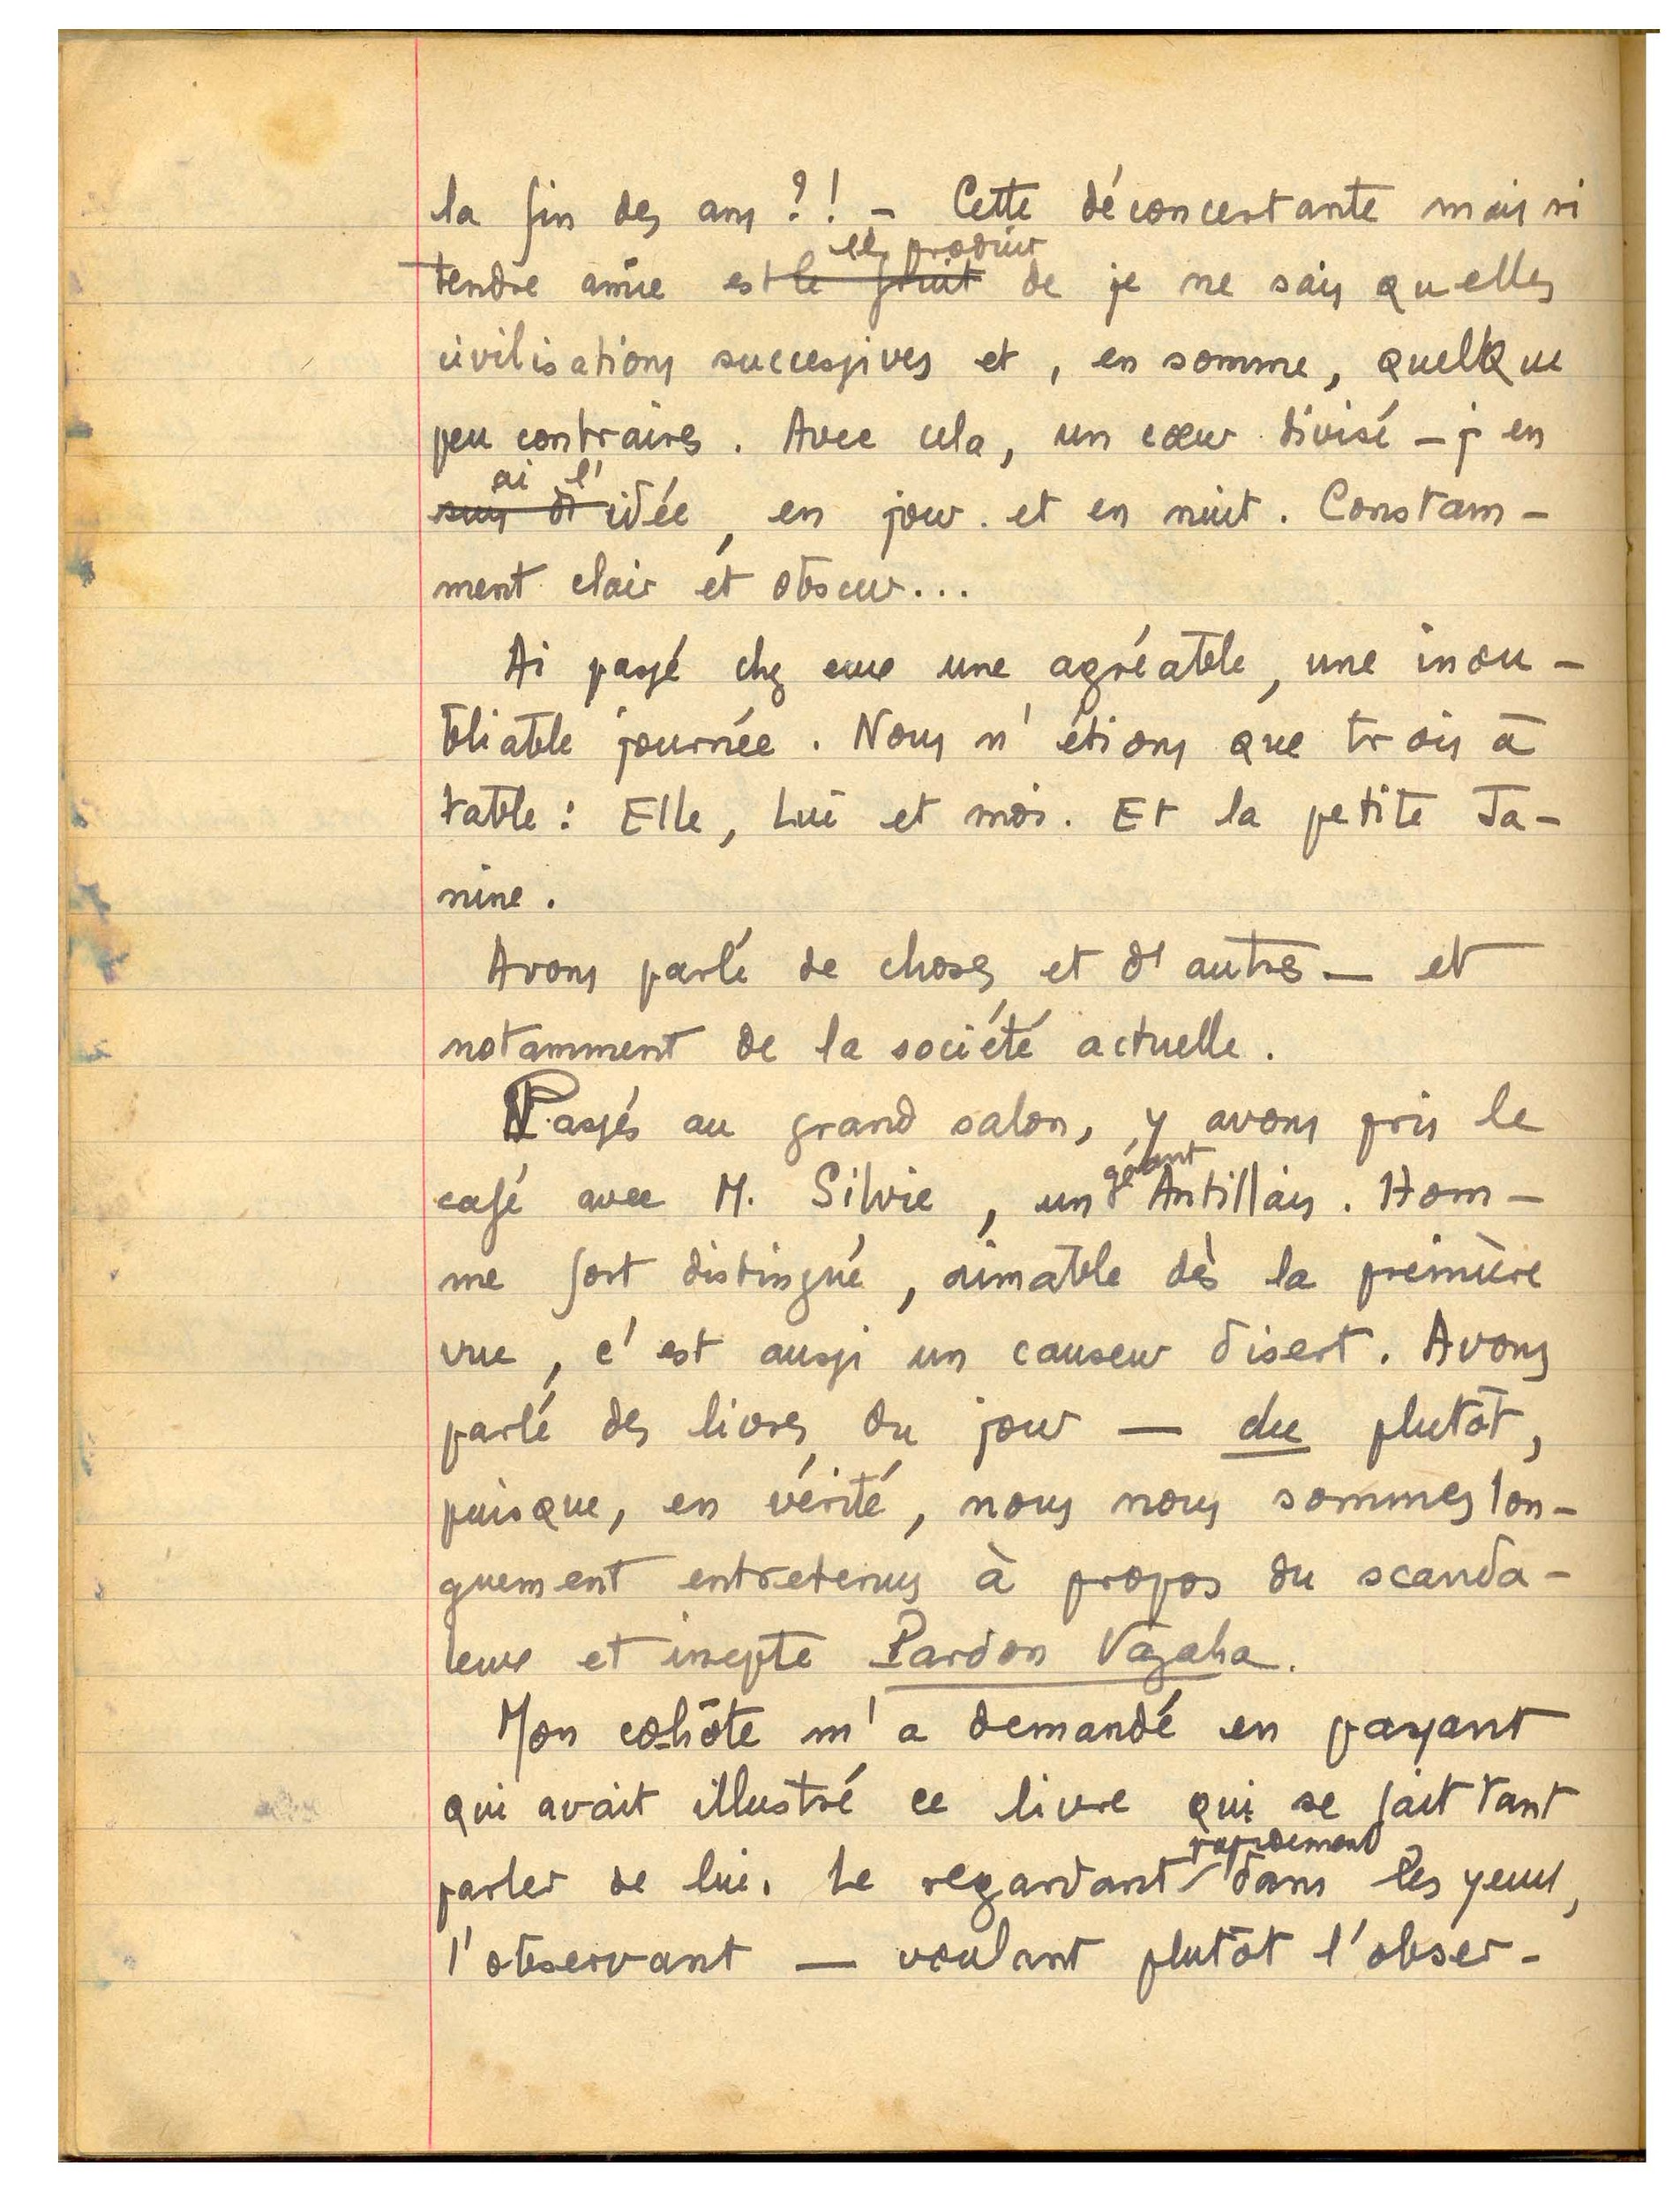 la fin des ans ?! – Cette déconcertante mais si
est produit
tendre amie est le fruit de je ne sais quelles
civilisations successives et, en somme, quelque
peu contraires. Avec cela, un cœur divisé – j'en
ai l'
suis d'idée, en jour et en nuit. Constam-
ment clair et obscur...
Ai passé chez eux une agréable, une inou-
bliable journée. Nous n'étions que trois à
table : Elle, Lui et moi. Et la petite Ja-
nine.
Avons parlé de choses et d'autres — et
notamment de la société actuelle.
Passés au grand salon, y avons pris le
géant
café avec M. Silvie, un Antillais. Hom-
me fort distingué, aimable dès la première
vue, c'est aussi un causeur disert. Avons
parlé des livres du jour — du plutôt,
puisque, en vérité, nous nous sommes lon-
guement entretenus à propos du scanda-
leux et inepte Pardon Vazaha.
Mon cohôte m'a demandé en passant
qui avait illustré ce livre qui se fait tant
rapidement
parler de lui. Le regardant dans les yeux,
l'observant — voulant plutôt l'obser-